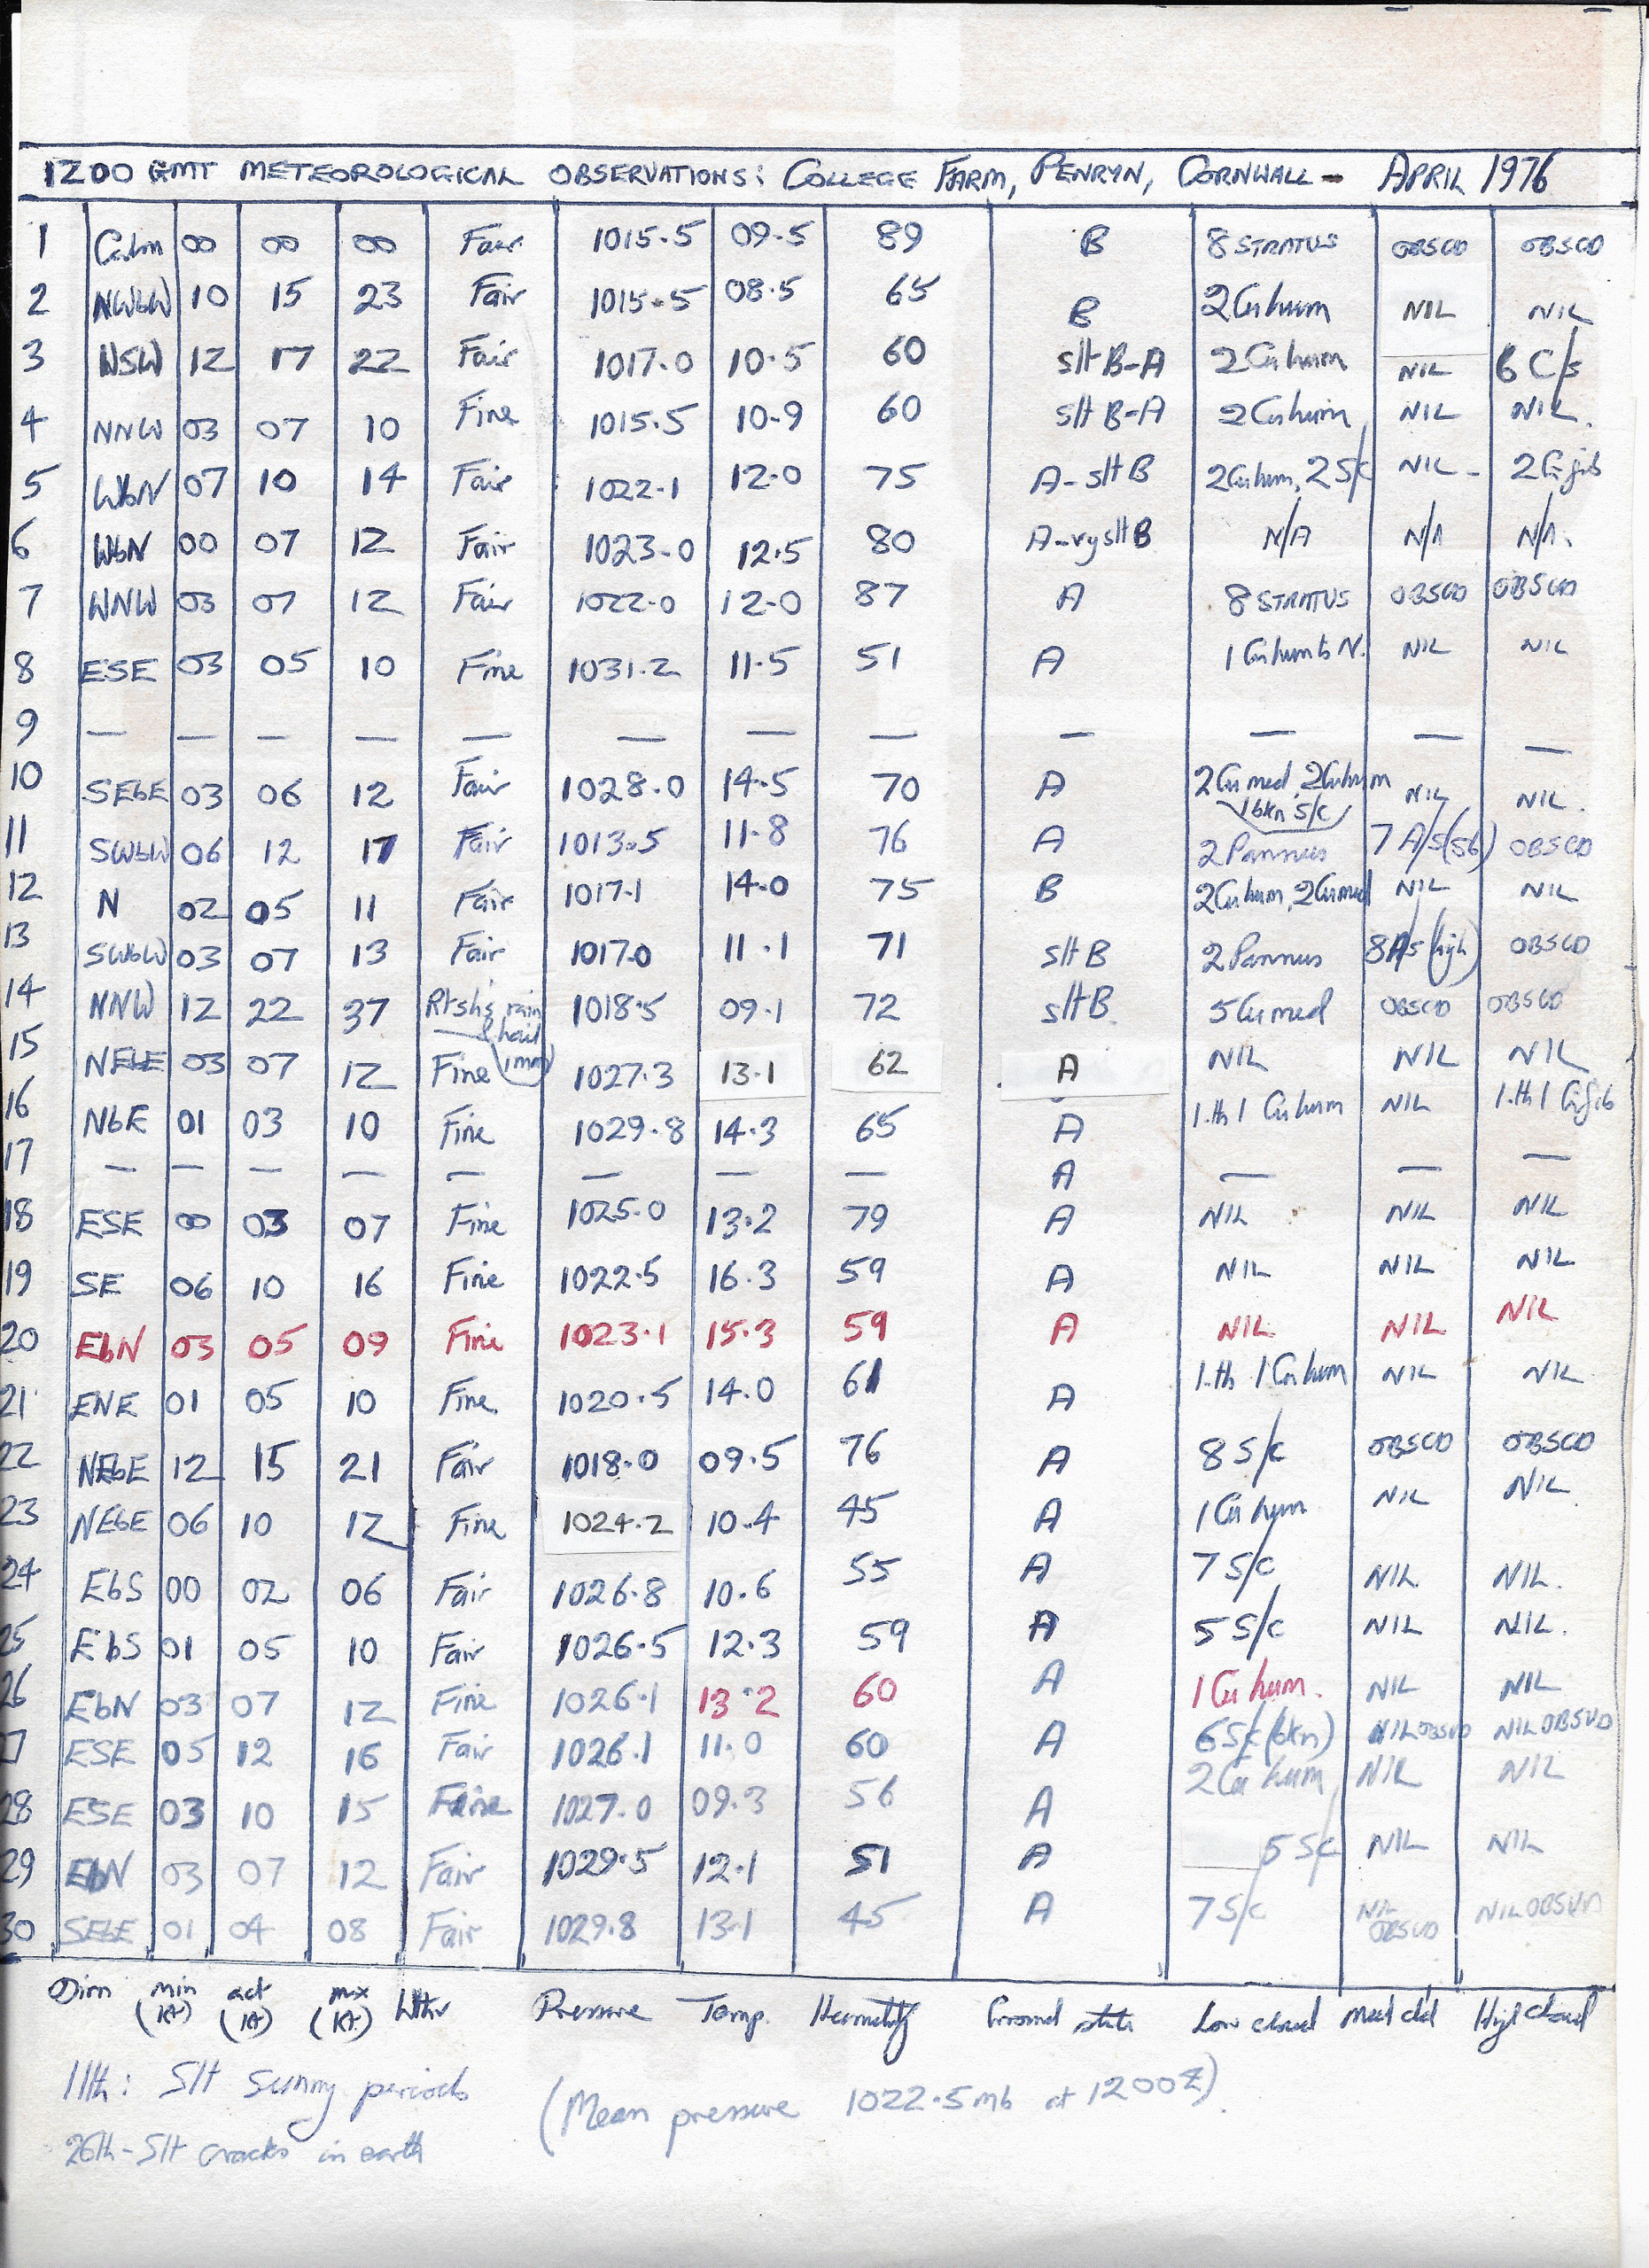 1200 GMT METEOROLOGICAL OBSERVATIONS: COLLEGE FARM, PENRYN, CORNWALL - APRIL 1976
1 Calm 00 00 00 Fair 1015.5 09.5 89 B 8 STRATUS OBSCD OBSCD
2 NWbW 10 15 23 Fair 1015.5 08.5 65 B 2 Cu hum NIL NIL
3 WSW 12 17 22 Fair 1017.0 10.5 60 slt B-A 2 Cu hum NIL 6 C/s
4 NNW 03 07 10 Fine 1015.5 10.9 60 slt B-A 2 Cu hum NIL NIL.
5 WbN 07 10 14 Fair 1022.1 12.0 75 A-slt B 2 Cu hum, 2 S/c NIL - 2 Ci fib
6 WbN 00 07 12 Fair 1023.0 12.5 80 A-vy slt B N/A N/A N/A.
7 WNW 03 07 12 Fair 1022.0 12.0 87 A 8 STRATUS OBSCD OBSCD
8 ESE 03 05 10 Fine 1031.2 11.5 51 A 1 Cu hum to N. NIL NIL
9 — — — — — — — — — — — —
10 SEbE 03 06 12 Fair 1028.0 14.5 70 A 2 Cu med, 2 Cu hum NIL NIL.
1 bkn S/c
11 SWbW 06 12 17 Fair 1013.5 11.8 76 A 2 Pannus 7 A/s (s6) OBSCD
12 N 02 05 11 Fair 1017.1 14.0 75 B 2 Cu hum, 2 Cu med NIL NIL
13 SWbW 03 07 13 Fair 1017.0 11.1 71 slt B 2 Pannus 8 A/s (high) OBSCD
14 NNW 12 22 37 Rtshs rain 1018.5 09.1 72 slt B. 5 Cu med OBSCD OBSCD
& hail
(1mm)
15 NEbE 03 07 12 Fine 1027.3 13.1 62 A NIL NIL NIL
16 NbE 01 03 10 Fine 1029.8 14.3 65 A 1.th 1 Cu hum NIL 1.th 1 Ci fib
17 — — — — — — — — A — — —
18 ESE 00 03 07 Fine 1025.0 13.2 79 A NIL NIL NIL
19 SE 06 10 16 Fine 1022.5 16.3 59 A NIL NIL NIL
20 EbN 03 05 09 Fine 1023.1 15.3 59 A NIL NIL NIL
21 ENE 01 05 10 Fine 1020.5 14.0 61 A 1.th 1 Cu hum NIL NIL
22 NEbE 12 15 21 Fair 1018.0 09.5 76 A 8 S/c OBSCD OBSCD
23 NEbE 06 10 12 Fine 1024.2 10.4 45 A 1 Cu hum NIL NIL
24 EbS 00 02 06 Fair 1026.8 10.6 55 A 7 S/c NIL NIL.
25 EbS 01 05 10 Fair 1026.5 12.3 59 A 5 S/c NIL NIL.
26 EbN 03 07 12 Fine 1026.1 13.2 60 A 1 Cu hum. NIL NIL
27 ESE 05 12 16 Fair 1026.1 11.0 60 A 6 S/c (bkn) NIL OBSVD NIL OBSVD
28 ESE 03 10 15 Fine 1027.0 09.3 56 A 2 Cu hum NIL NIL
29 EbN 03 07 12 Fair 1029.5 12.1 51 A 5 S/c NIL NIL
30 SEbE 01 04 08 Fair 1029.8 13.1 45 A 7 S/c NIL OBSVD NIL OBSVD
Dirn min (kt) act (kt) max (kt) Wthr Pressure Temp. Humidity Ground state Low cloud Med cld High cloud
11th: Slt sunny periods
(Mean pressure 1022.5 mb at 1200Z)
26th - Slt cracks in earth